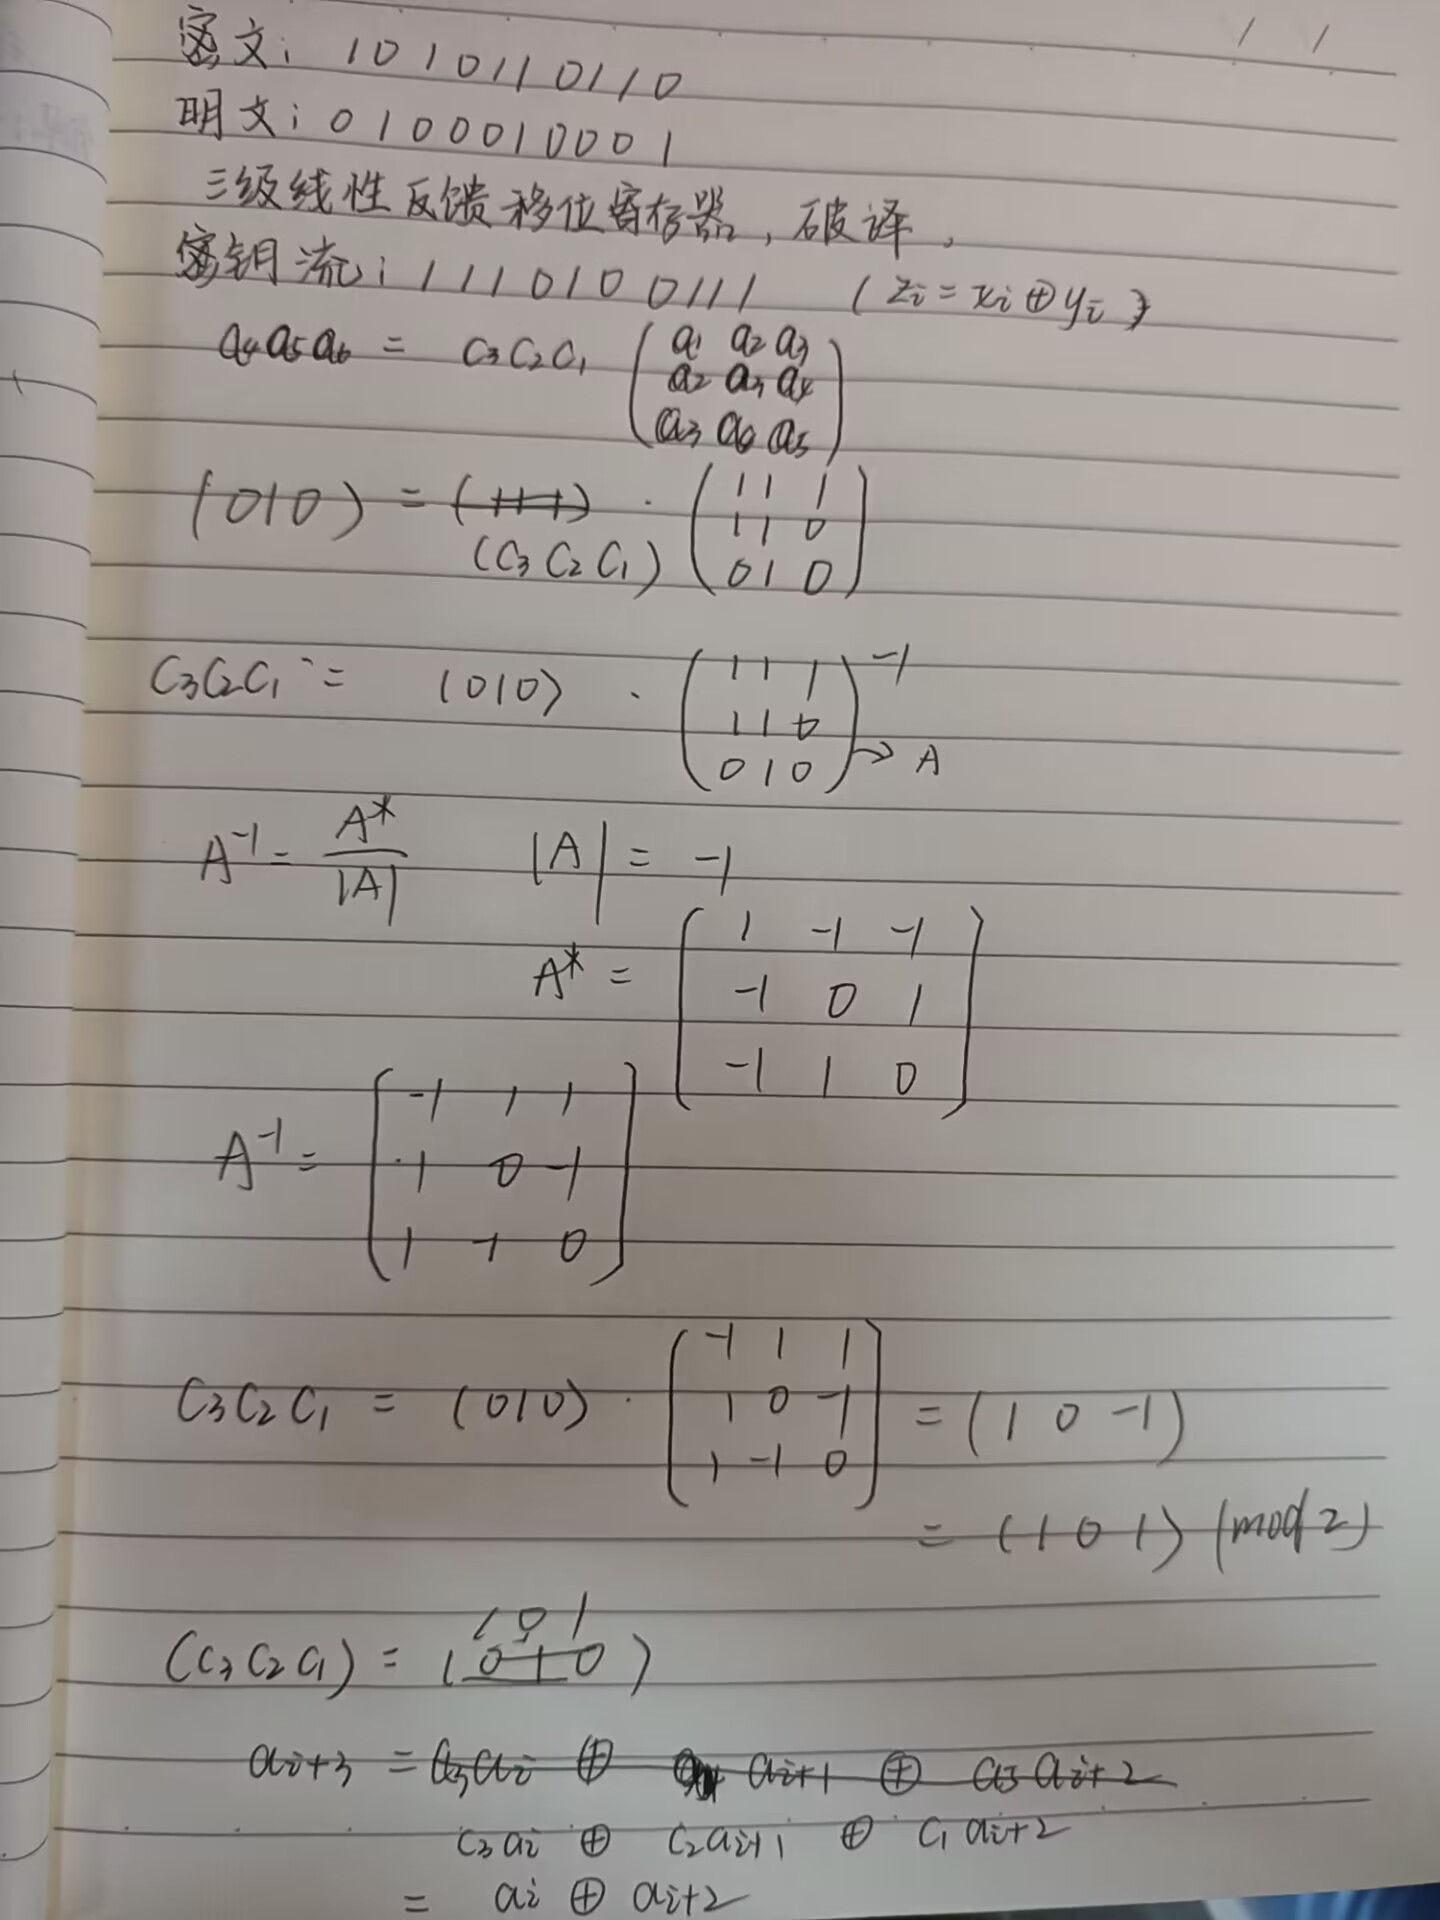 密文: 1010110110
明文: 0100010001
三级线性反馈移位寄存器, 破译,
密钥流: 1110100111 (zi = xi ⊕ yi)
a4a5a6 = C3C2C1 (a1 a2 a3
a2 a3 a4
a3 a4 a5)
(010) = (111) · (1 1 1
(C3 C2 C1) 1 1 0
0 1 0)
C3C2C1 = (010) · (1 1 1
1 1 0
0 1 0)⁻¹ → A
A⁻¹ = A*/|A| |A| = -1
A* = [1 -1 -1
-1 0 1
-1 1 0]
A⁻¹ = [-1 1 1
1 0 -1
1 -1 0]
C3C2C1 = (010) · [-1 1 1
1 0 -1
1 -1 0] = (1 0 -1)
= (1 0 1) (mod 2)
1 0 1
(C3 C2 C1) = (0 1 0)
ai+3 = ai ⊕ ai+1 ⊕ ai+2
C3ai ⊕ C2ai+1 ⊕ C1ai+2
= ai ⊕ ai+2